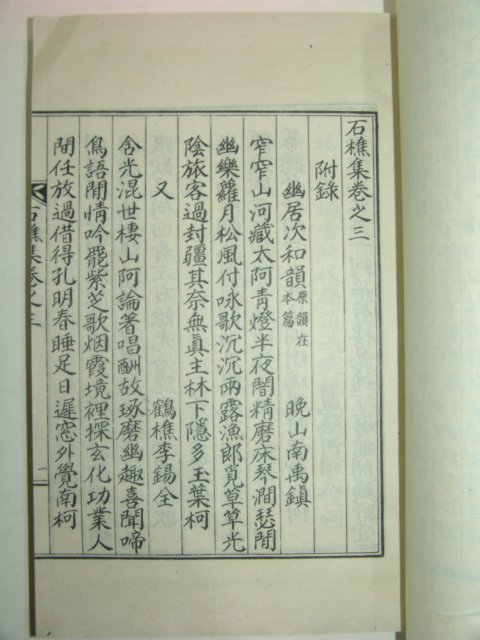 石樵集卷之三
附錄
幽居次和韻 原韻在本篇 晩山南禹鎭
窄窄山河藏太阿青燈半夜闇精磨床琴澗瑟閒
幽樂蘿月松風付咏歌沉沉雨露漁郎覓草草光
陰旅客過封疆其奈無眞主林下隱多玉葉柯
又 鶴樵李錫全
含光混世棲山阿論著唱酬故琢磨幽趣喜聞啼
鳥語閒情吟罷紫芝歌烟霞境裡探玄化功業人
間任放過借得孔明春睡足日遲窓外覺南柯
石樵集卷之三
一